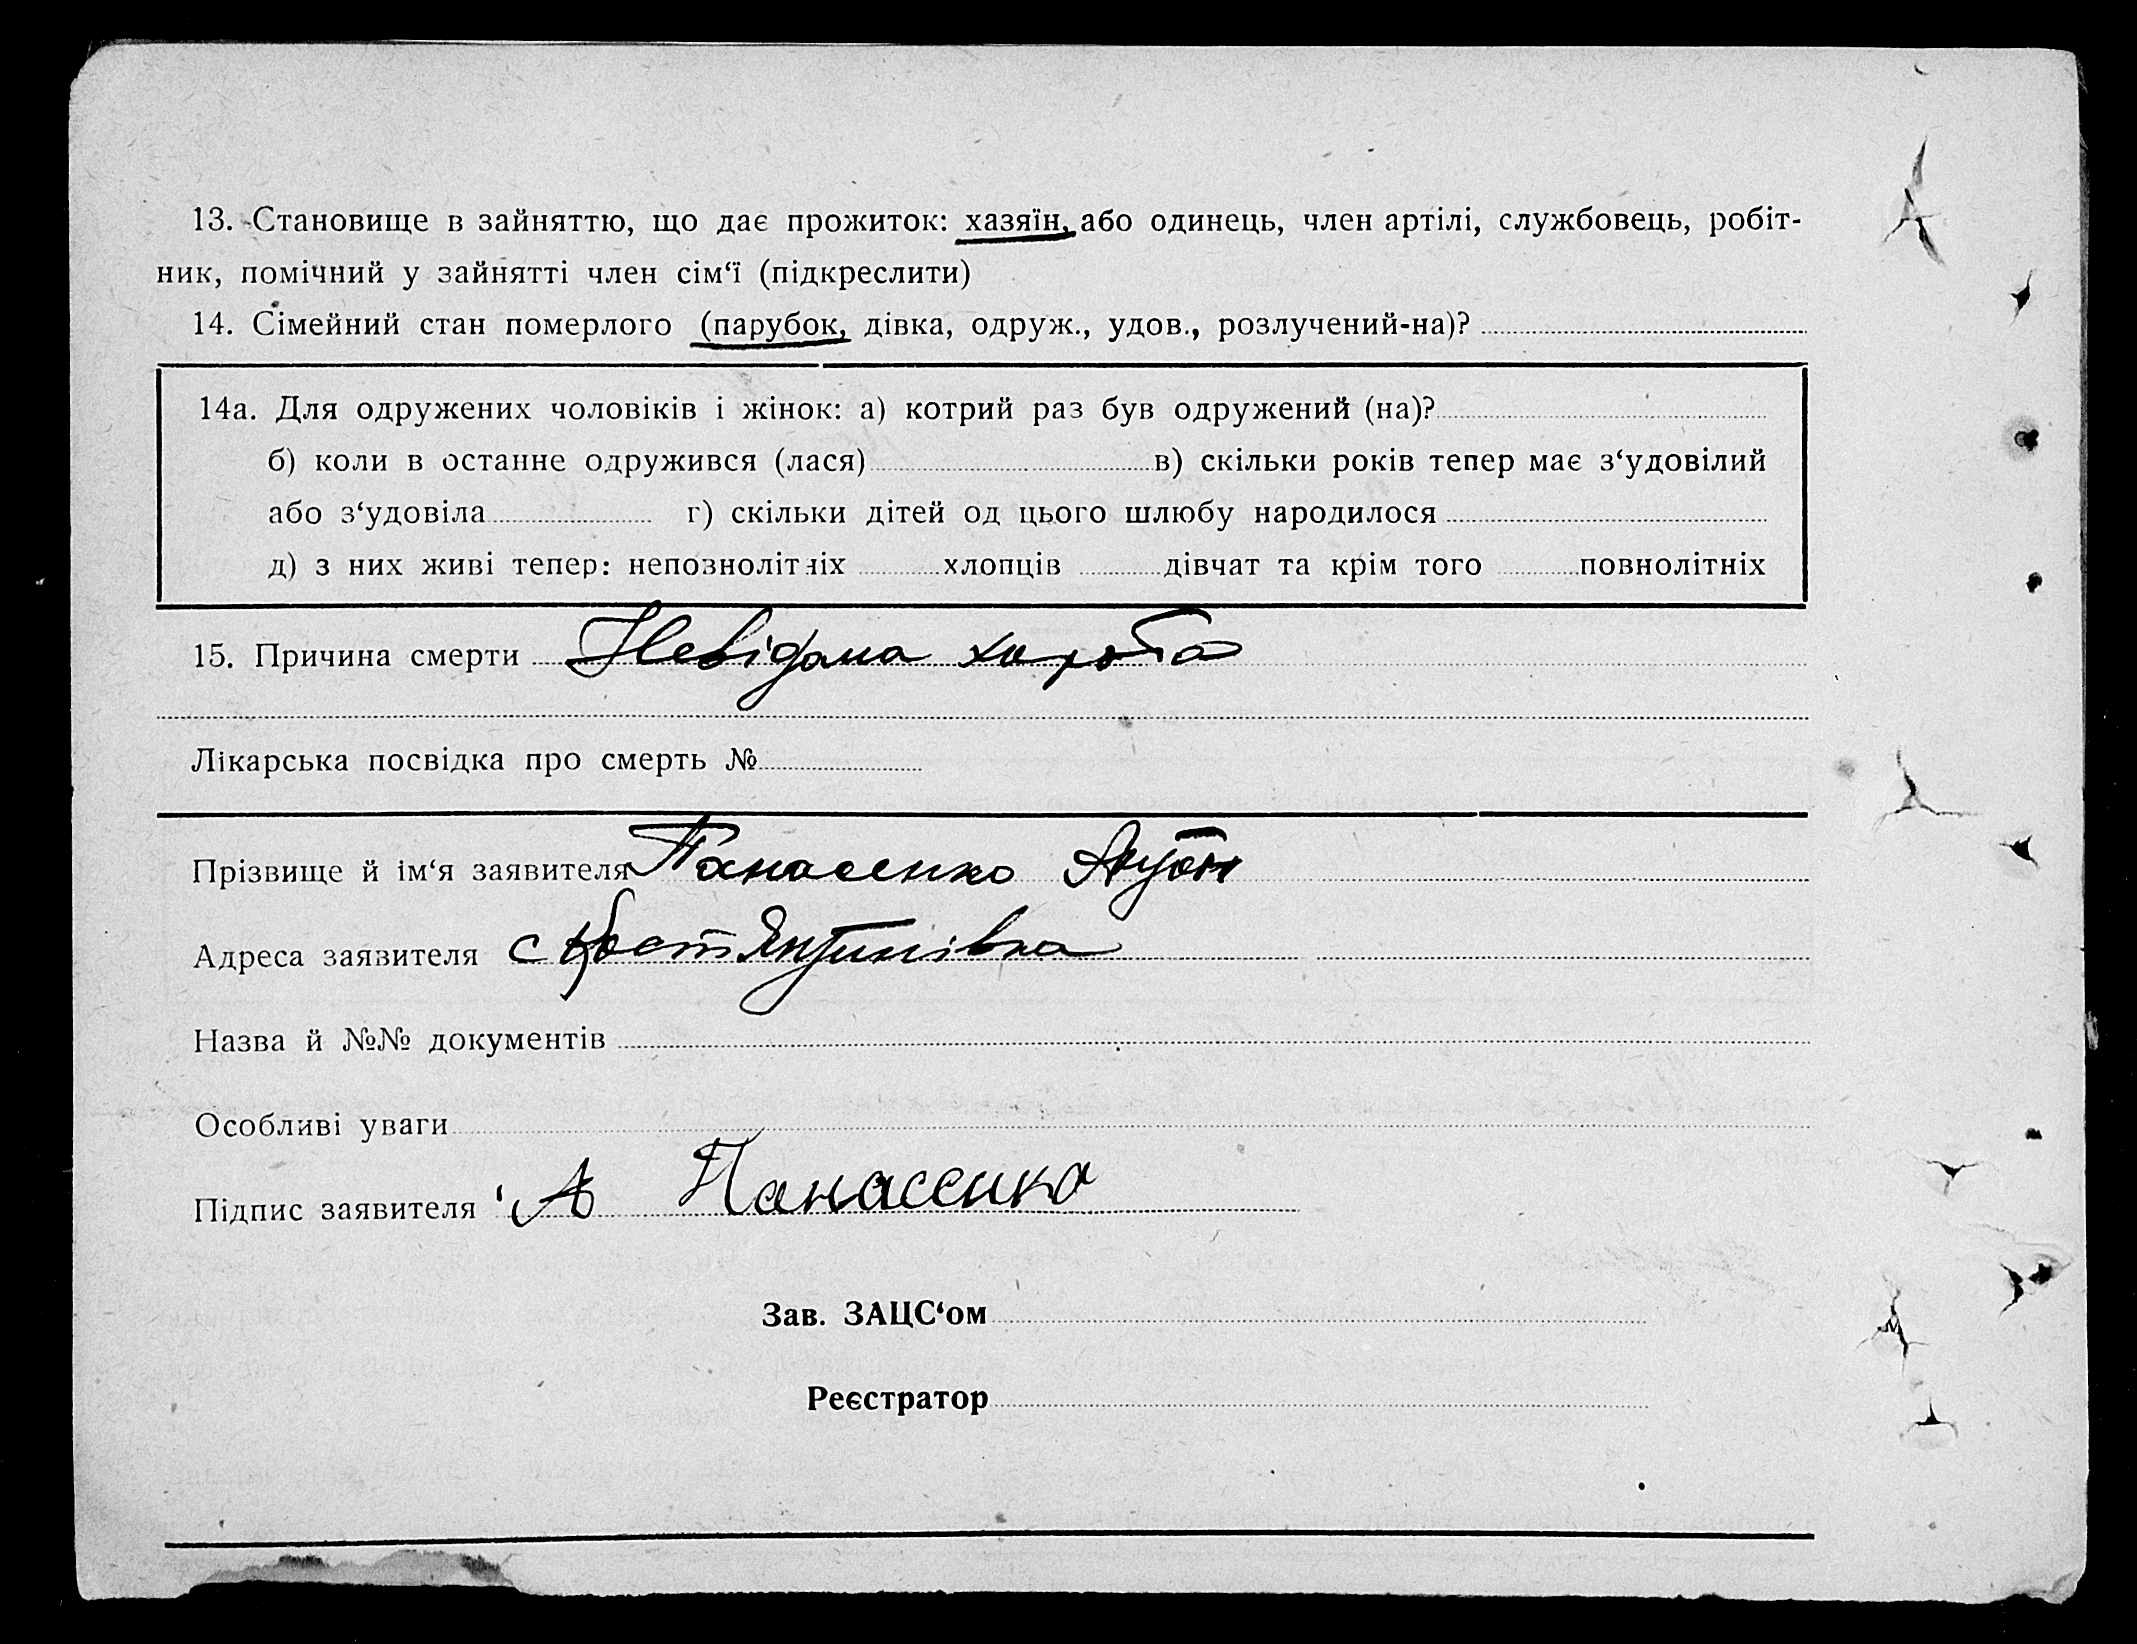 13. Становище в зайняттю, що дає прожиток: хазяїн, або одинець, член артілі, службовець, робіт-
ник, помічний у зайнятті член сім‘ї (підкреслити)
14. Сімейний стан померлого (парубок, дівка, одруж., удов., розлучений-на)?
14а. Для одружених чоловіків і жінок: а) котрий раз був одружений (на)?
б) коли в останне одружився (лася) в) скільки років тепер має з‘удовілий
або з‘удовіла г) скільки дітей од цього шлюбу народилося
д) з них живі тепер: непознолітніх хлопців дівчат та крім того повнолітніх
15. Причина смерти Невідома хороба
Лікарська посвідка про смерть №
Прізвище й ім‘я заявителя Панасенко Антон
Адреса заявителя с Костянтинівка
Назва й №№ документів
Особливі уваги
Підпис заявителя А Панасенко
Зав. ЗАЦС‘ом
Реєстратор